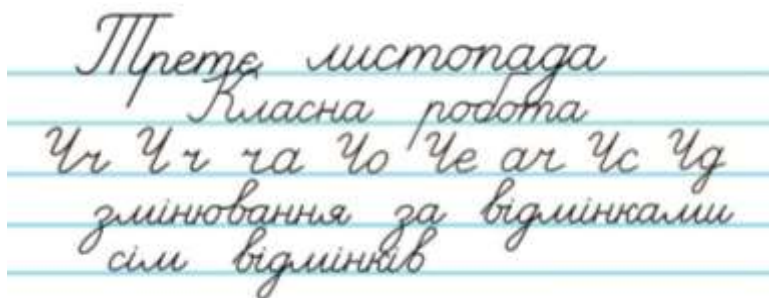 Третє листопада
Класна робота
Чч Чч ча Чо Че ач Чс Чд
змінювання за відмінками
сім відмінків